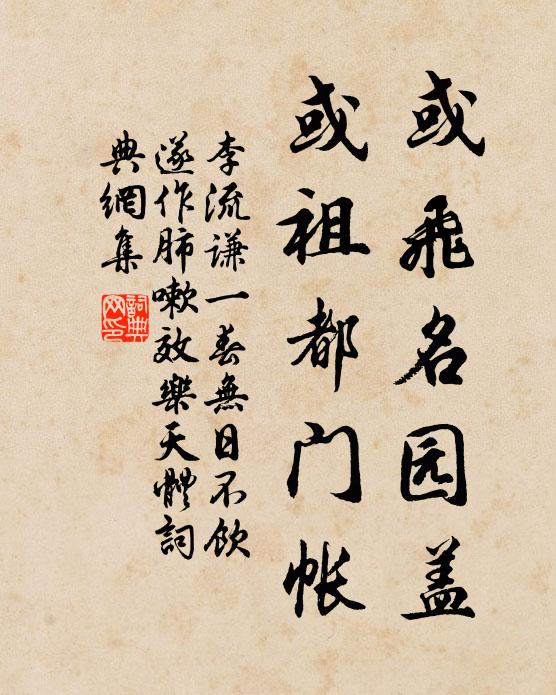 或飛名园盖
或祖都门帐
李流謙一春無日不飲
遂作肺嗽效樂天體詞
典網集
詞典网印